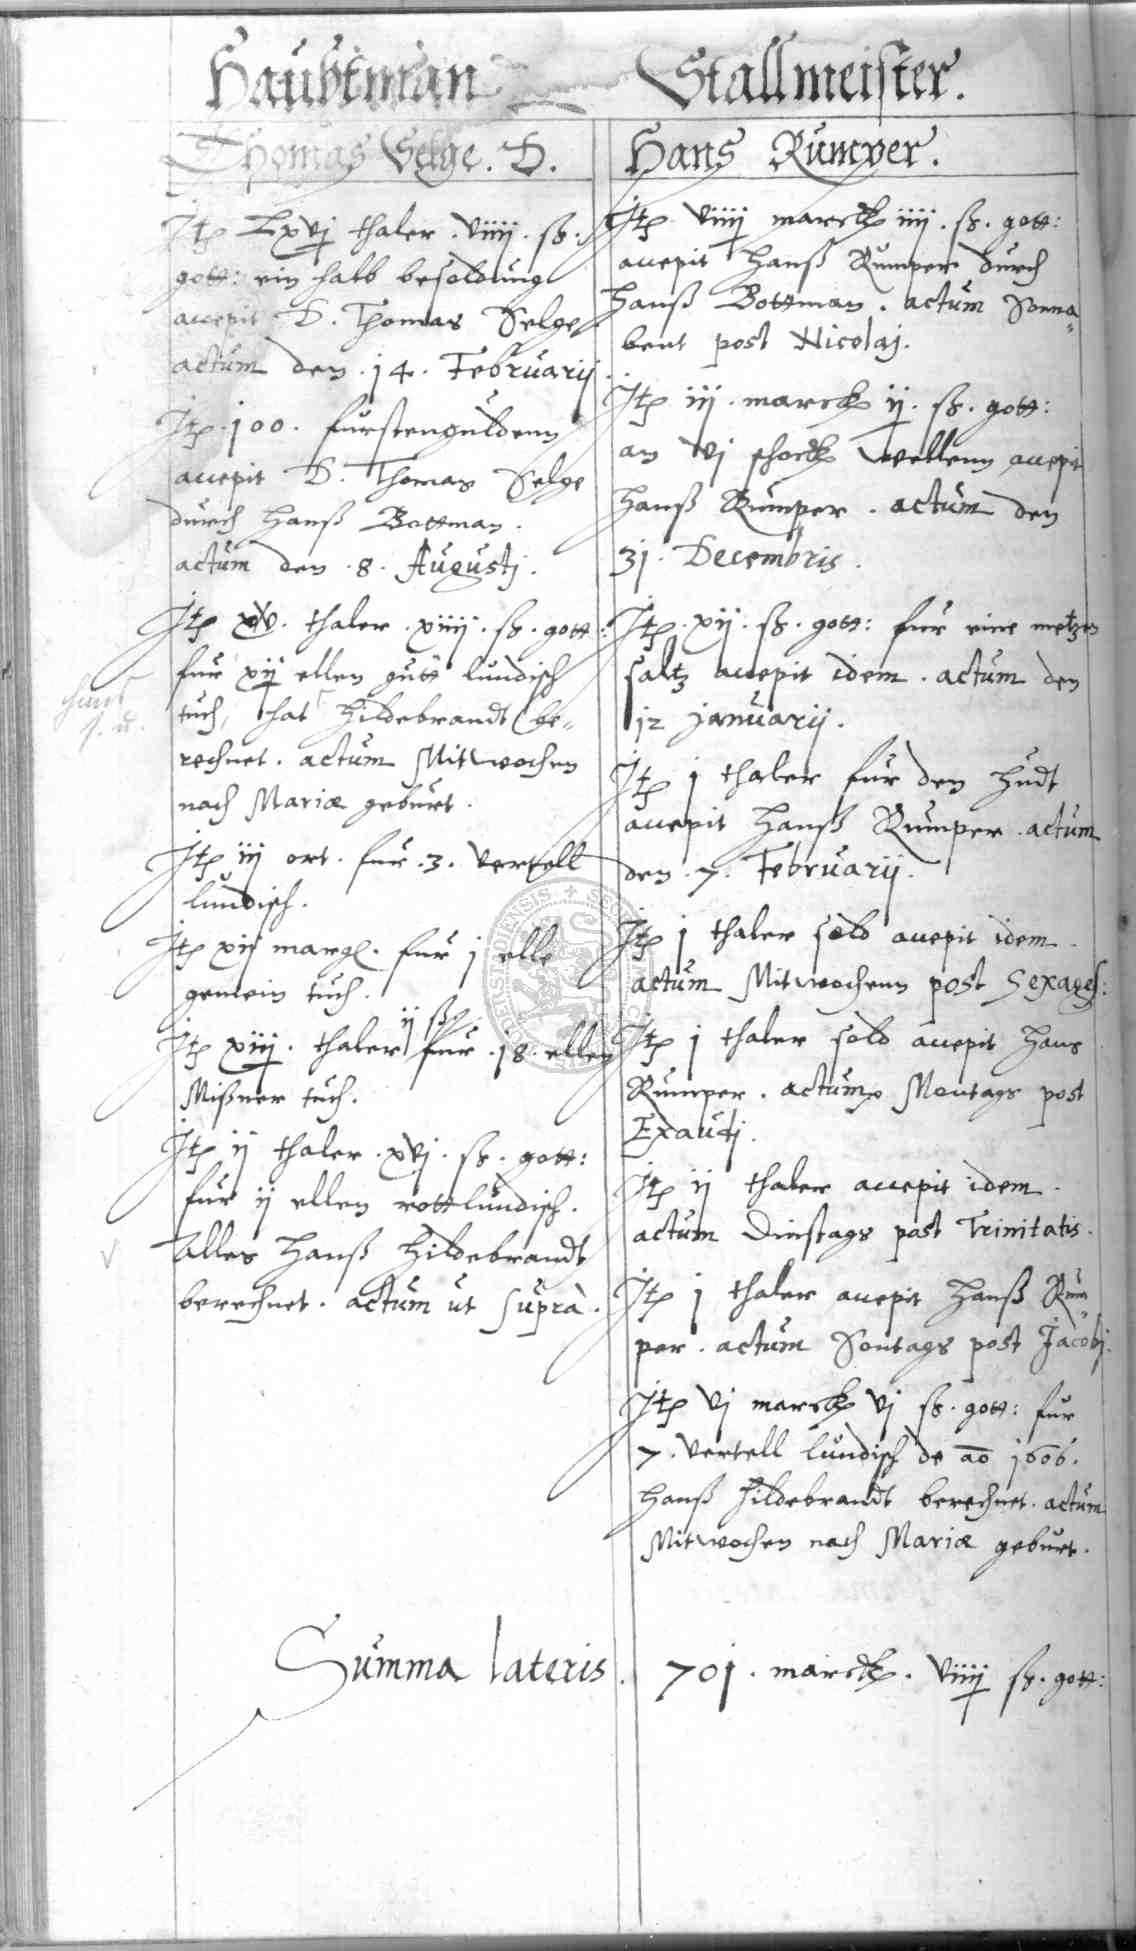 Haubtman
Thomas Selge. D.
Itp Lxvj thaler. viiij. sß.
gott: ein halb besoldung
accepit D. Thomas Selge
actum den. 14. Februarij
Itp. 100. furstenguldenn
accepit D. Thomas Selge
durch Hanß Bottman.
actum den. 8. Augustj.
Itp xv. thaler. xiiij. sß. gott:
fur xij ellen gutt lundisch
tuch, hat Hildebrandt be-
rechnet. actum Mitwochen
nach Mariæ geburt.
Itp iij ort. fur. 3. vertell
lundisch.
Itp xij margl. fur j elle
gemein tuch.
Itp xiij. thaler ij sß fur. 18. ellen
Mißner tuch.
Itp ij thaler. xvj. sß. gott:
fur ij ellen rott lundisch.
Alles Hanß Hildebrandt
berechnet. actum ut supra.
Stallmeister.
Hans Rumper.
Itp viiij marck iiij. sß. gott:
accepit Hanß Rumper durch
Hanß Bottman. actum Sonna-
bent post Nicolaj.
Itp iij. marck ij. sß. gott:
an vj schock wellenn accepit
Hanß Rumper. actum den
31. Decembris.
Itp. xij. sß. gott: fur eine metzen
saltz accepit idem. actum den
12 januarij.
Itp j thaler fur den hudt
accepit Hanß Rumper. actum
den. 7. Februarij.
Itp j thaler sold accepit idem.
actum Mitwochenn post Sexages:
Itp j thaler sold accepit Hans
Rumper. actum Montags post
Exaudj.
Itp ij thaler accepit idem.
actum Dinstags post Trinitatis.
Itp j thaler accepit Hanß Rum-
per. actum Sontags post Jacobj.
Itp vj marck vj sß. gott: fur
7. vertell lundisch de ao 1606.
Hanß Hildebrandt berechnet. actum
Mitwochen nach Mariæ geburt.
Summa lateris. 701. marck. viiij sß. gott: